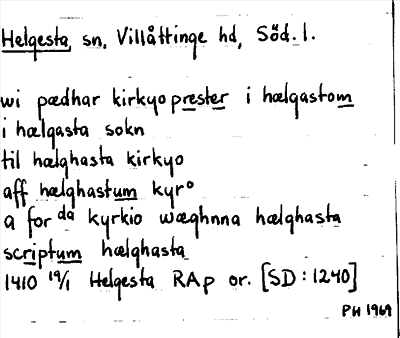 Helgesta, sn, Villåttinge hd, Söd. l.
wi pædhar kirkyoprester i hælgastom
i hælgasta sokn
til hælghasta kirkyo
aff hælghastum kyrº
a for da kyrkio wæghnna hælghasta
scriptum hælghasta
1410 19/1 Helgesta RAp or. [SD:1240]
PH 1969